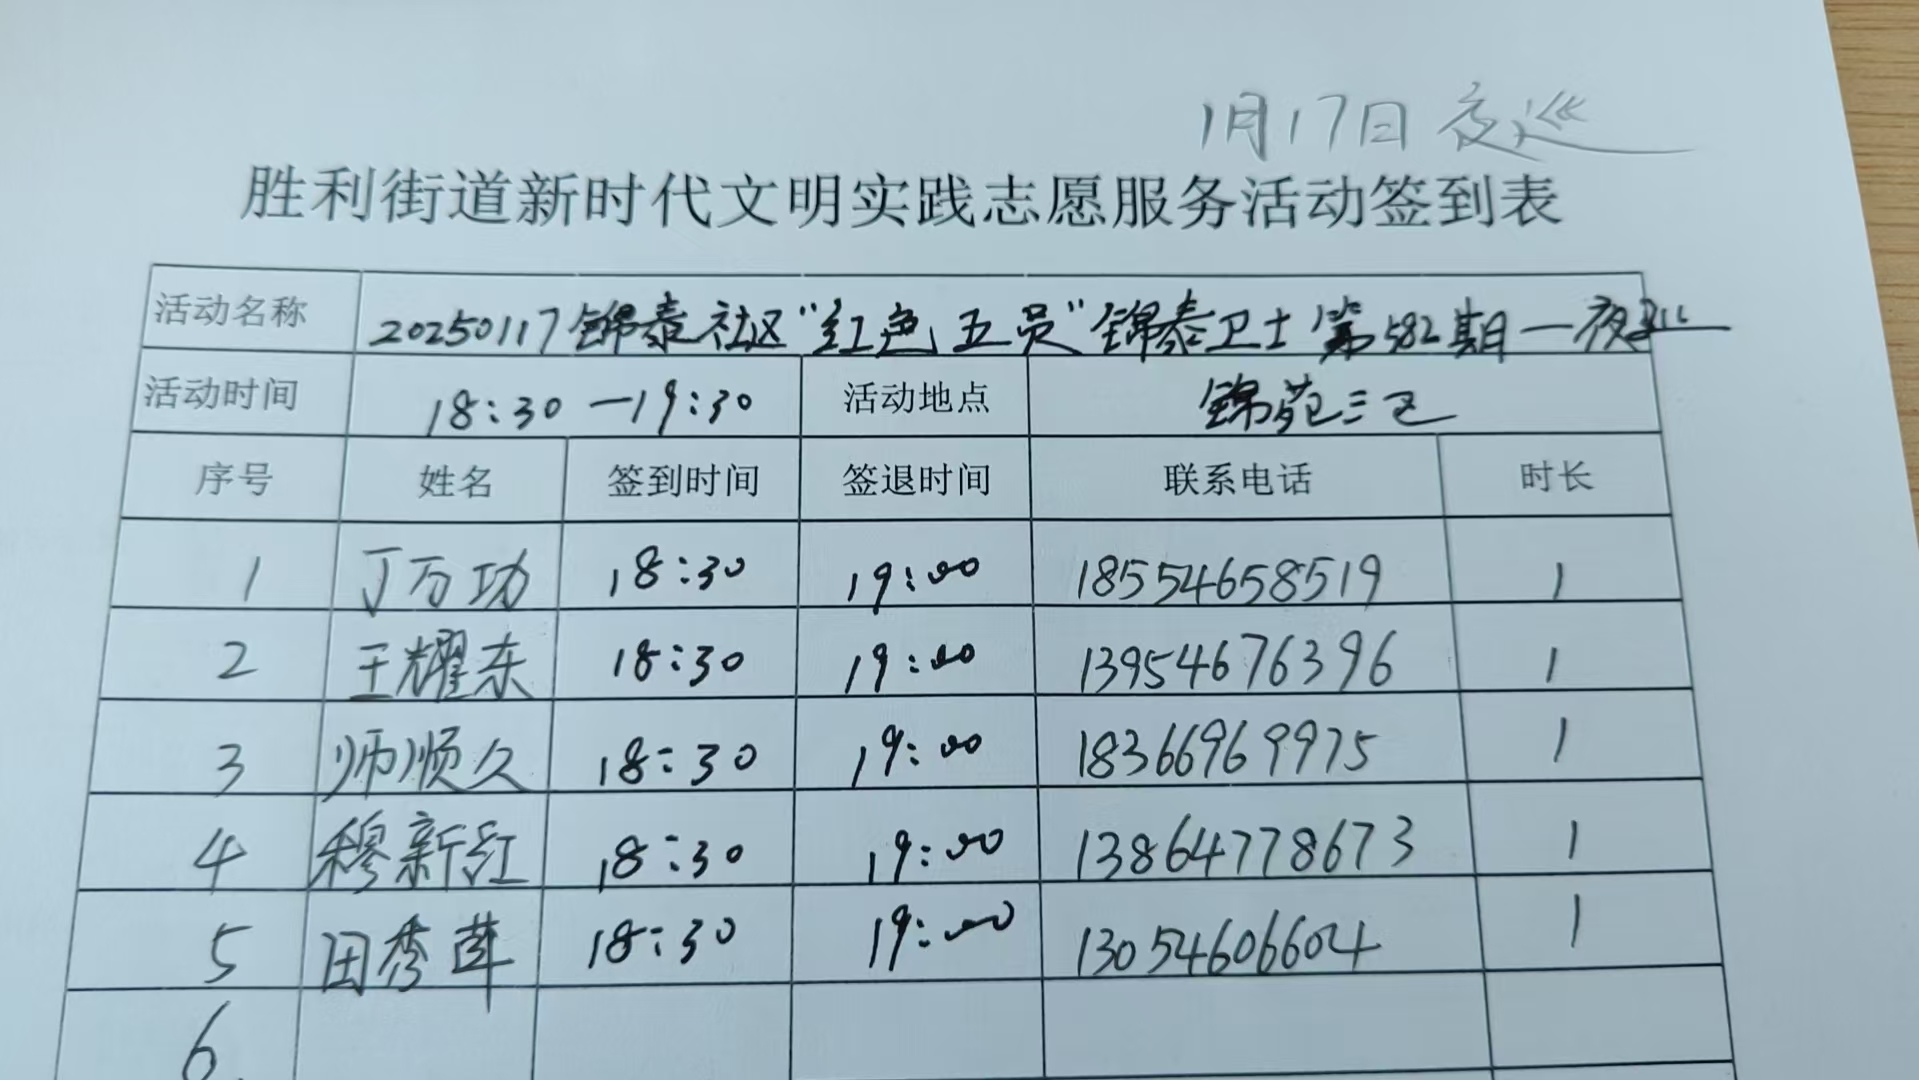 1月17日 夜巡
胜利街道新时代文明实践志愿服务活动签到表
活动名称 20250117锦泰社区“红色五员”锦泰卫士第582期一夜巡
活动时间 18:30—19:30 活动地点 锦苑三区
序号 姓名 签到时间 签退时间 联系电话 时长
1 丁万功 18:30 19:00 18554658519 1
2 王耀东 18:30 19:00 13954676396 1
3 师顺久 18:30 19:00 18366969975 1
4 穆新红 18:30 19:00 13864778673 1
5 田秀 18:30 19:00 13054606604 1
6.